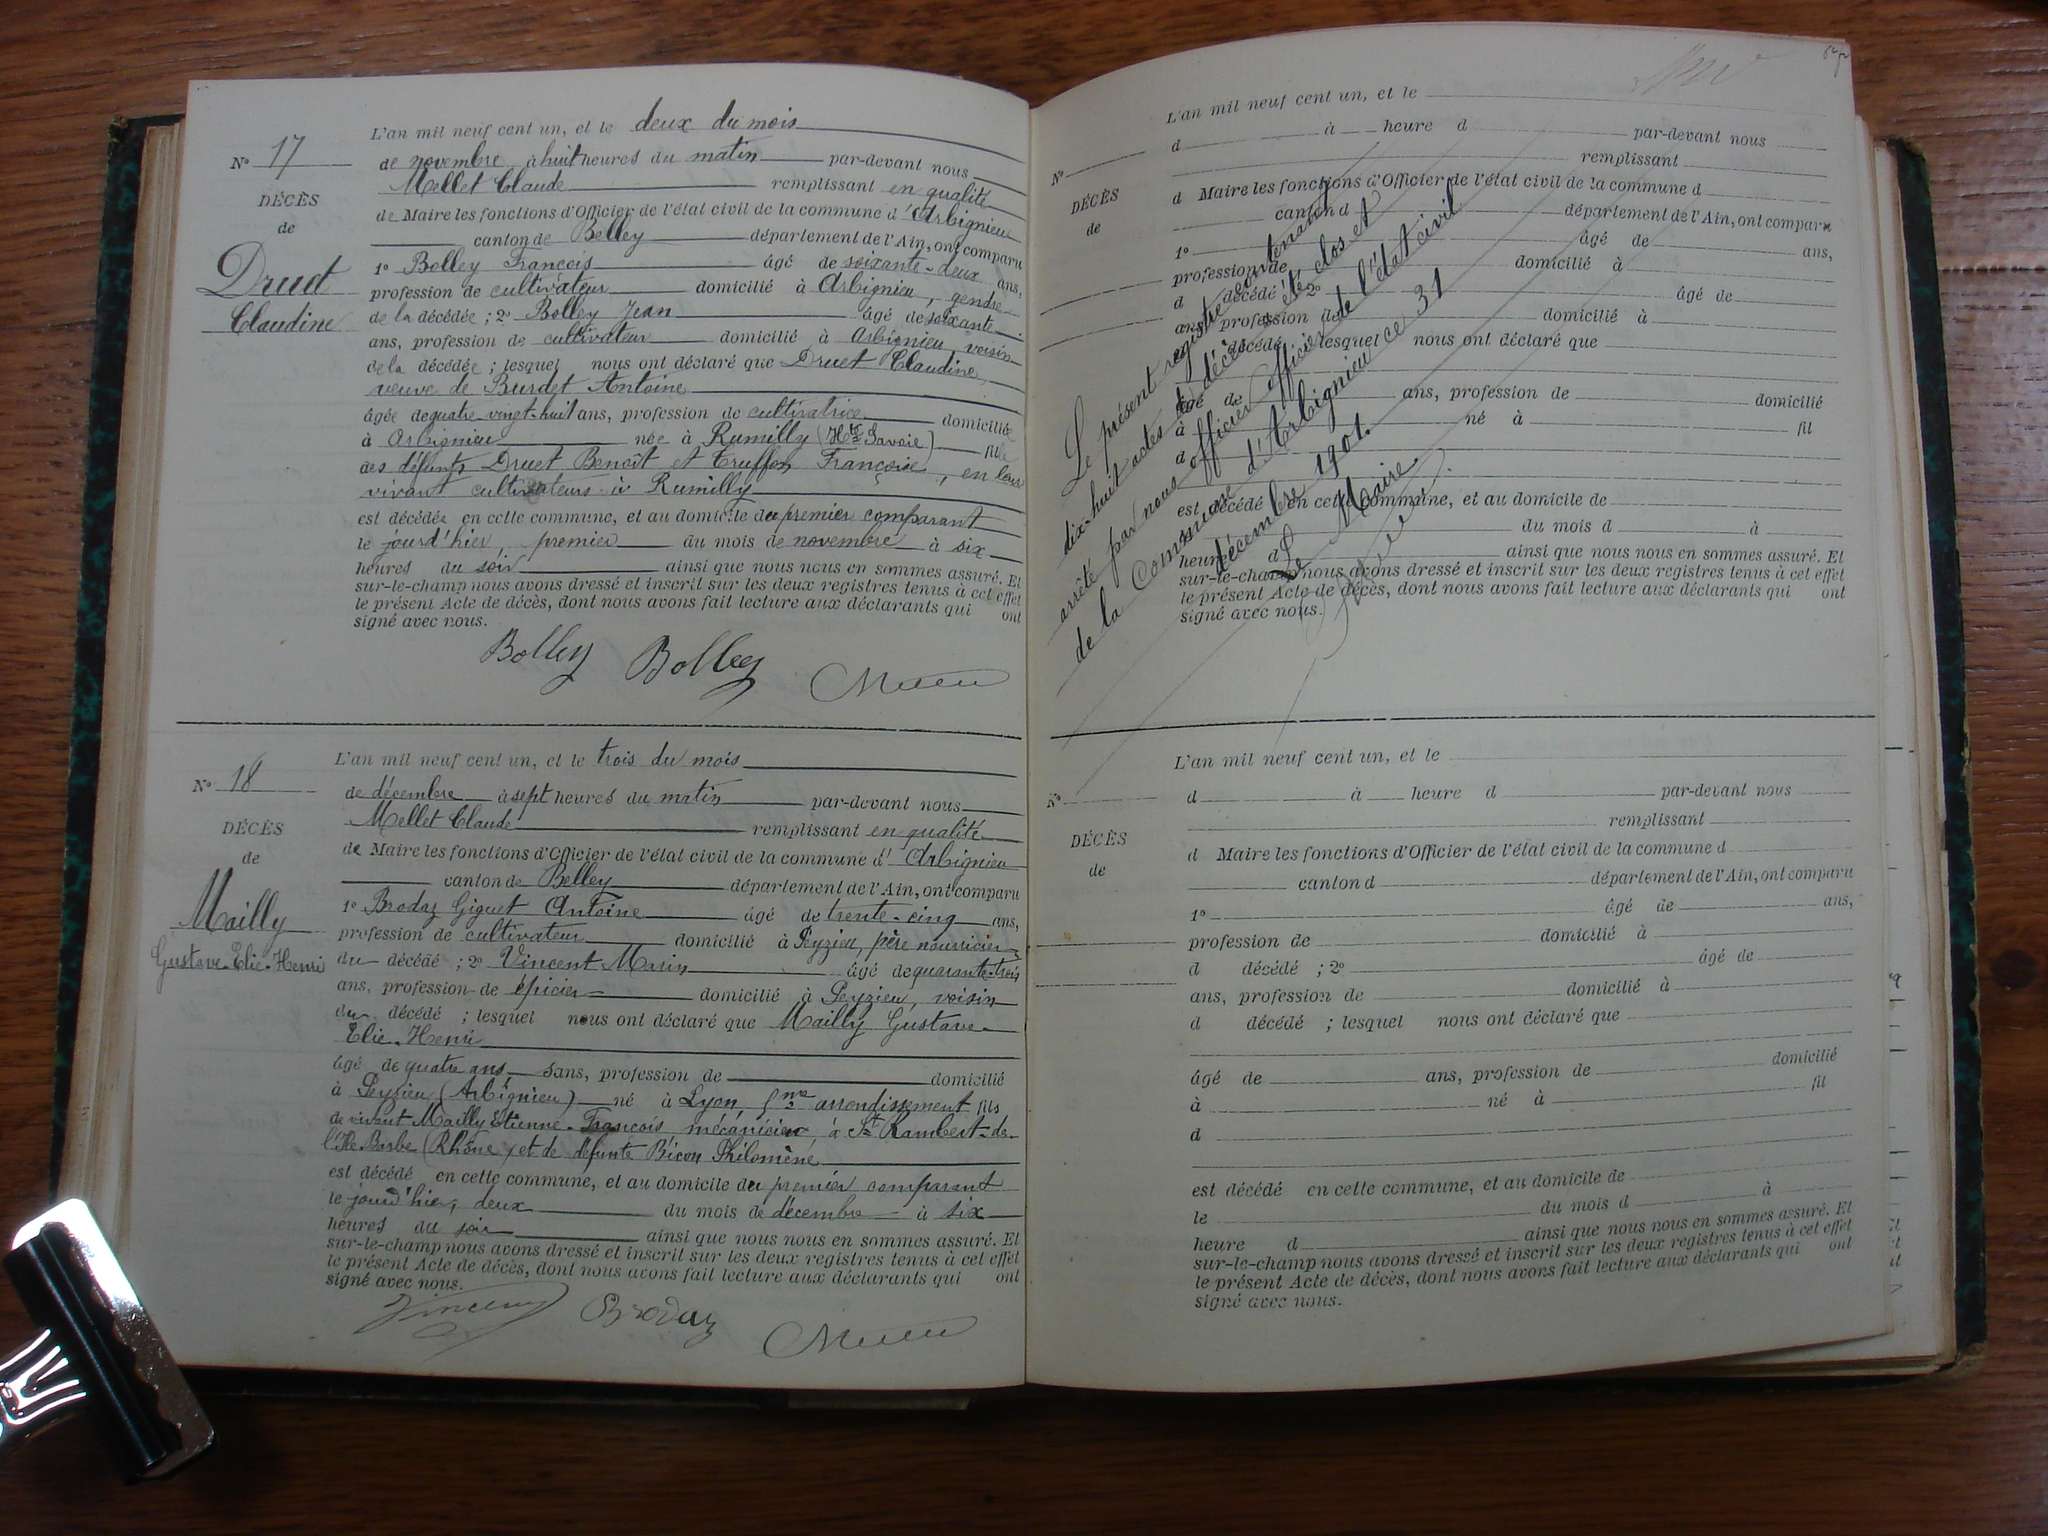 N° 17
DÉCÈS
de
Druet
Claudine
L'an mil neuf cent un, et le deux du mois
de novembre à huit heures du matin par-devant nous
Mellet Claude remplissant en qualité
de Maire les fonctions d'Officier de l'état civil de la commune d'Arbignieu
canton de Belley département de l'Ain, ont comparu
1° Bolley François âgé de soixante-deux ans,
profession de cultivateur domicilié à Arbignieu, gendre
de la décédée ; 2° Bolley Jean âgé de soixante
ans, profession de cultivateur domicilié à Arbignieu, voisin
de la décédée ; lesquel nous ont déclaré que Druet Claudine,
veuve de Burdet Antoine
âgée de quatre-vingt-huit ans, profession de cultivatrice domiciliée
à Arbignieu née à Rumilly (Hte Savoie) fille
des défunts Druet Benoît et Truffon Françoise, en leur
vivant cultivateurs à Rumilly
est décédée en cette commune, et au domicile du premier comparant
le jourd'hier, premier du mois de novembre à six
heures du soir ainsi que nous nous en sommes assuré. Et
sur-le-champ nous avons dressé et inscrit sur les deux registres tenus à cet effet
le présent Acte de décès, dont nous avons fait lecture aux déclarants qui ont
signé avec nous.
Bolley Bolley
N° 18
DÉCÈS
de
Mailly
Gustave-Elie-Henri
L'an mil neuf cent un, et le trois du mois
de décembre à sept heures du matin par-devant nous
Mellet Claude remplissant en qualité
de Maire les fonctions d'Officier de l'état civil de la commune d'Arbignieu
canton de Belley département de l'Ain, ont comparu
1° Brodaz Giguet Antoine âgé de trente-cinq ans,
profession de cultivateur domicilié à Peyzieu, père nourricier
du décédé ; 2° Vincent Marin âgé de quarante-trois
ans, profession de épicier domicilié à Peyzieu, voisin
du décédé ; lesquel nous ont déclaré que Mailly Gustave-
Elie-Henri
âgé de quatre ans sans, profession de domicilié
à Peyzieu (Arbignieu) né à Lyon, arrondissement fils
de vivant Mailly Etienne-François mécanicien, à St Rambert-de-
l'Ile-Barbe (Rhône) et de défunte Bicon Philomène
est décédé en cette commune, et au domicile du premier comparant
le jourd'hier, deux du mois de décembre à six
heures du soir ainsi que nous nous en sommes assuré. Et
sur-le-champ nous avons dressé et inscrit sur les deux registres tenus à cet effet
le présent Acte de décès, dont nous avons fait lecture aux déclarants qui ont
signé avec nous.
Vincent Brodaz
L'an mil neuf cent un, et le
N° d à heure d par-devant nous
remplissant
DÉCÈS
de
d Maire les fonctions d'Officier de l'état civil de la commune d
canton d département de l'Ain, ont comparu
1° âgé de ans,
profession de domicilié à
d décédé ; 2° âgé de
ans, profession de domicilié à
d décédé ; lesquel nous ont déclaré que
âgé de ans, profession de domicilié
à né à fil
d
est décédé en cette commune, et au domicile de
le du mois d à
heure d ainsi que nous nous en sommes assuré. Et
sur-le-champ nous avons dressé et inscrit sur les deux registres tenus à cet effet
le présent Acte de décès, dont nous avons fait lecture aux déclarants qui ont
signé avec nous.
Le présent registre contenant
dix-huit actes de décès a été clos et
arrêté par nous officier officier de l'état civil
de la Commune d'Arbignieu ce 31
décembre 1901.
Le Maire
L'an mil neuf cent un, et le
N° d à heure d par-devant nous
remplissant
DÉCÈS
de
d Maire les fonctions d'Officier de l'état civil de la commune d
canton d département de l'Ain, ont comparu
1° âgé de ans,
profession de domicilié à
d décédé ; 2° âgé de
ans, profession de domicilié à
d décédé ; lesquel nous ont déclaré que
âgé de ans, profession de domicilié
à né à fil
d
est décédé en cette commune, et au domicile de
le du mois d à
heure d ainsi que nous nous en sommes assuré. Et
sur-le-champ nous avons dressé et inscrit sur les deux registres tenus à cet effet
le présent Acte de décès, dont nous avons fait lecture aux déclarants qui ont
signé avec nous.